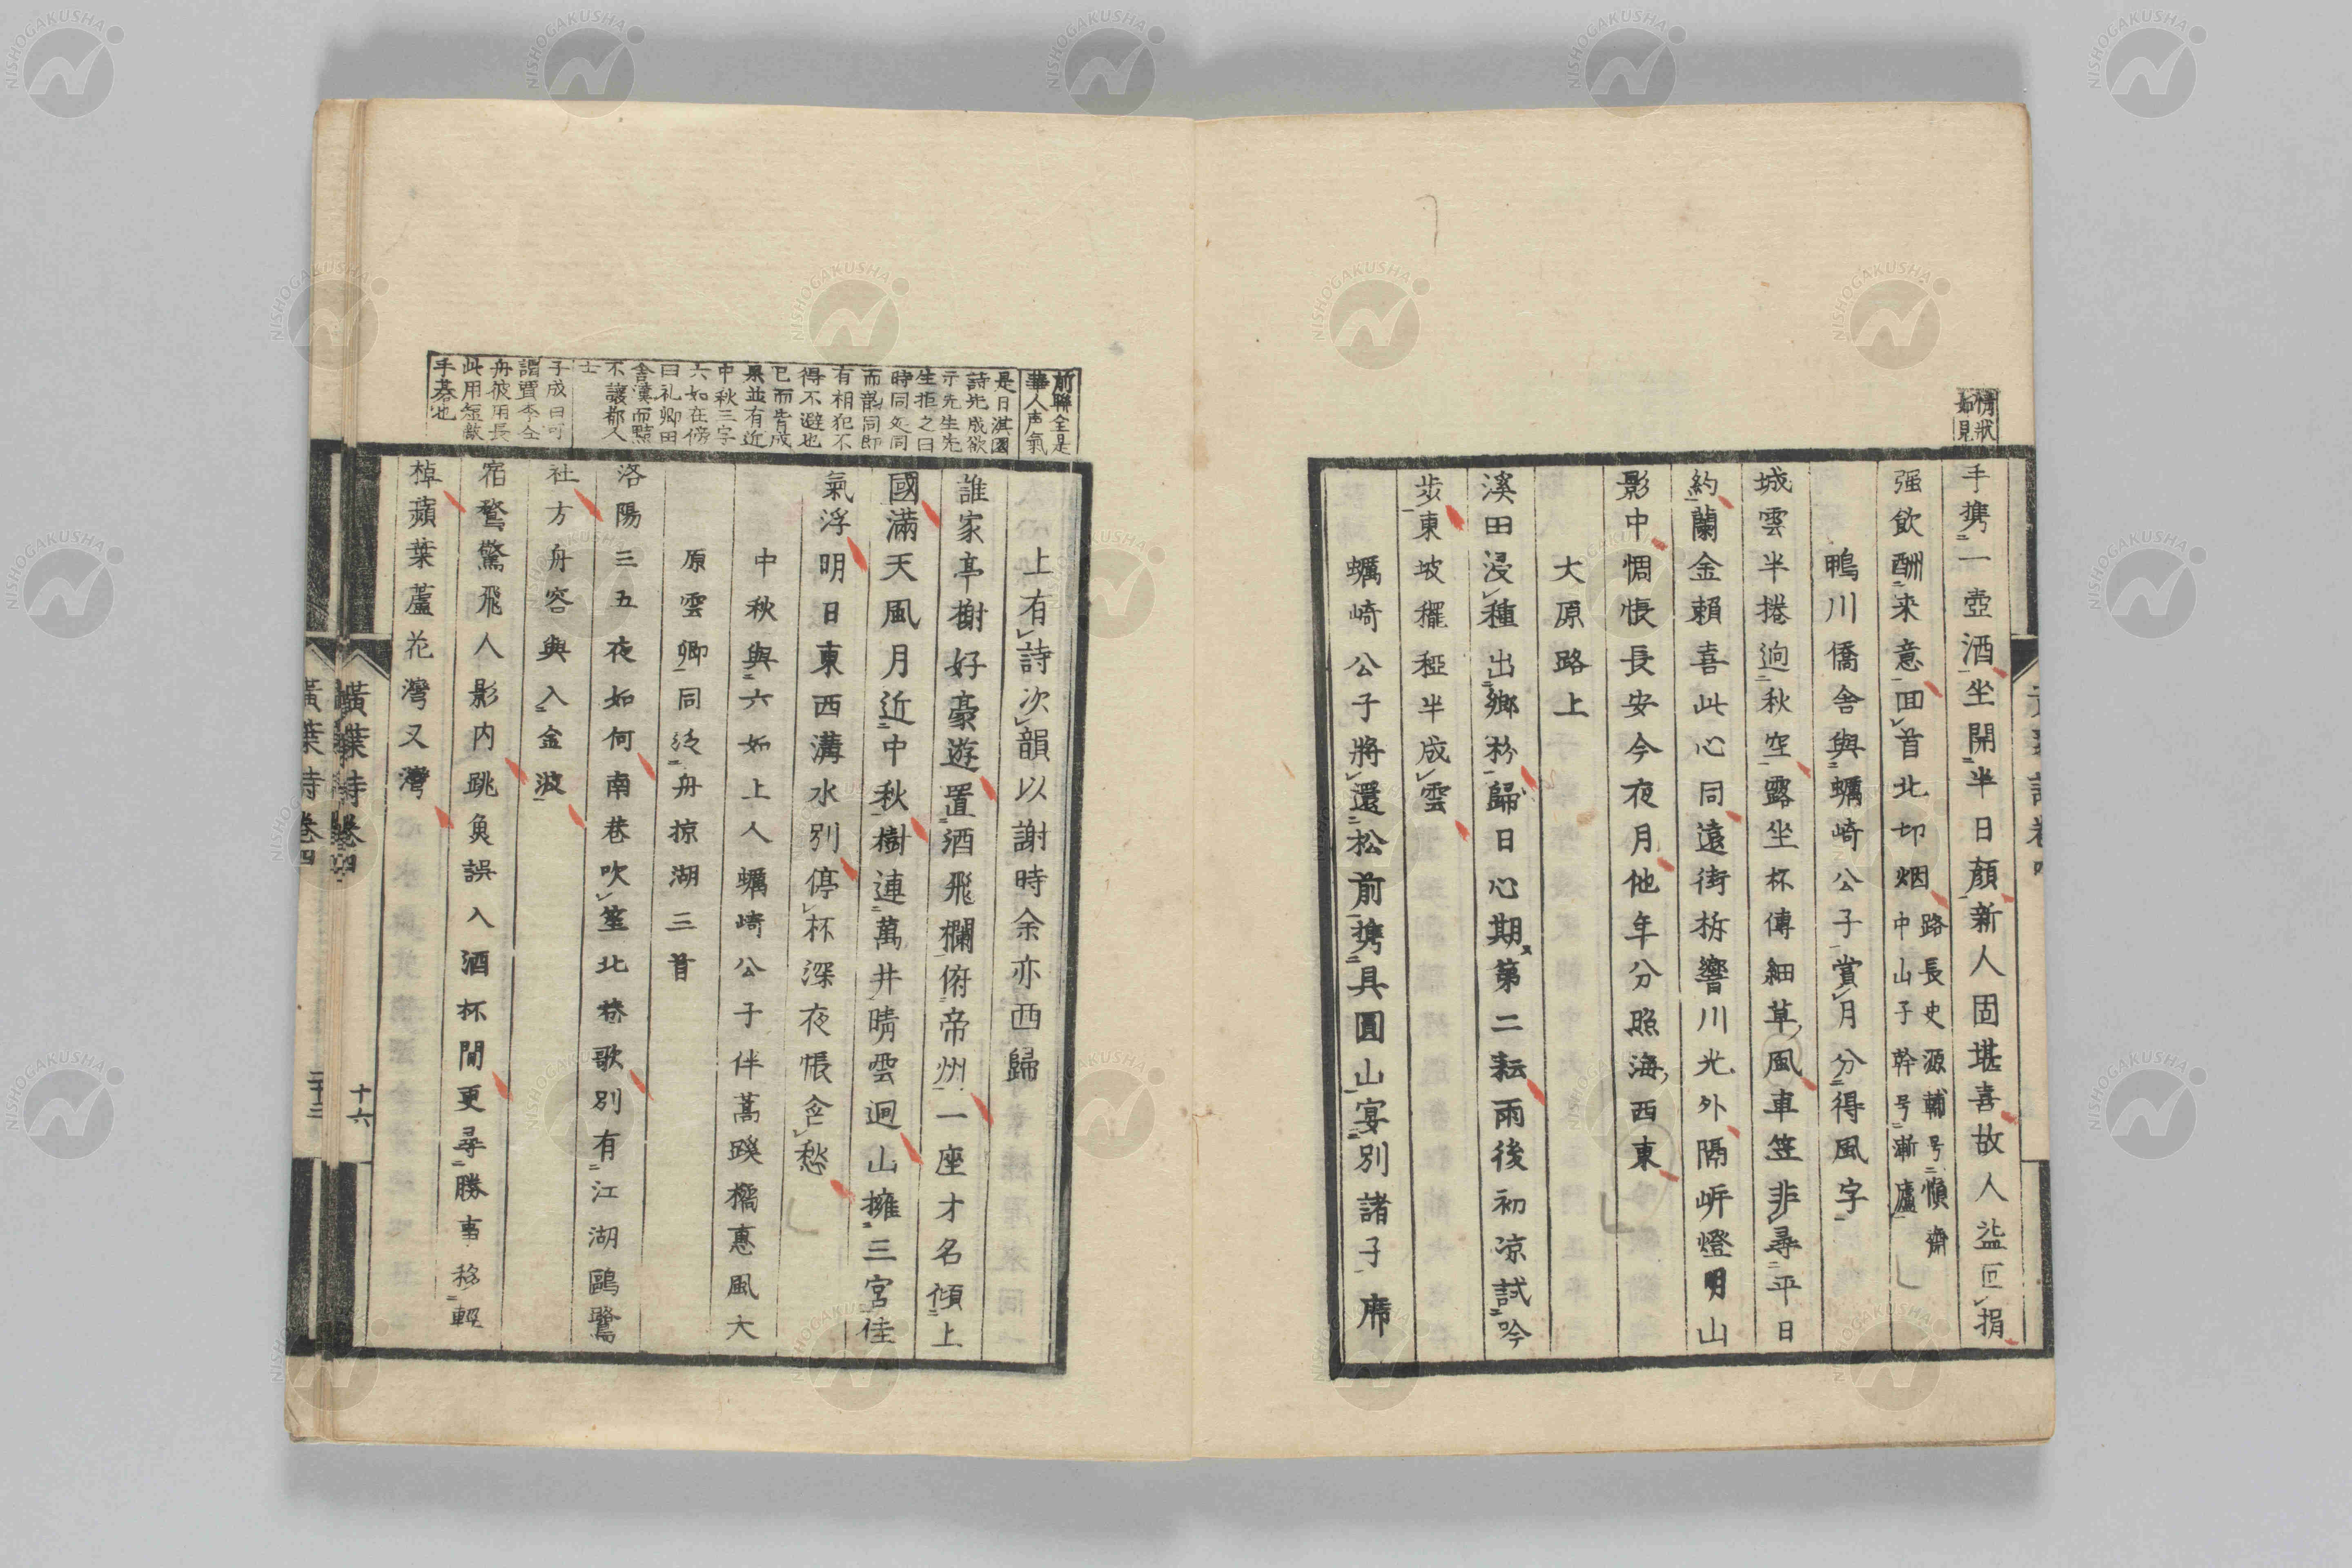 情狀
如見
手携一壺酒坐開半日顏新人固堪喜故人盃叵捐
强飲酬來意回首北邙烟
路長史源輔号愼齋
中山子幹号漸廬
鴨川僑舍與蠣崎公子賞月分得風字
城雲半捲逈秋空露坐杯傳細草風車笠非尋平日
約蘭金賴喜此心同遠街柝響川光外隔岍燈明山
影中惆悵長安今夜月他年分照海西東
大原路上
溪田浸種出鄉枌歸日心期第二耘雨後初凉試吟
步東坡䆉稏半成雲
蠣崎公子將還松前携具圓山宴別諸子席
前聯全是
華人声氣
是日淇園
詩先成欲
示先生先
生拒之曰
時同処同
而韵同即
有相犯不
得不避也
已而皆成
果並有近
中秋三字
六如在傍
曰礼卿田
舎漢而黠
不讓都人
士
子成曰可
謂賈本全
舟彼用長
此用短敵
手碁也
上有詩次韻以謝時余亦西歸
誰家亭榭好豪遊置酒飛欄俯帝州一座才名傾上
國滿天風月近中秋樹連萬井晴雲迴山擁三宮佳
氣浮明日東西溝水別停杯深夜悵含愁
中秋與六如上人蠣崎公子伴蒿蹊橘惠風大
原雲卿同泛舟掠湖三首
洛陽三五夜如何南巷吹笙北巷歌別有江湖鷗鷺
社方舟容與入金波
宿鶩驚飛人影内跳魚誤入酒杯間更尋勝事移輕
棹蘋葉蘆花灣又灣
黃葉詩卷四
十六
黃葉詩卷四
二十三
NISHOGAKUSHA